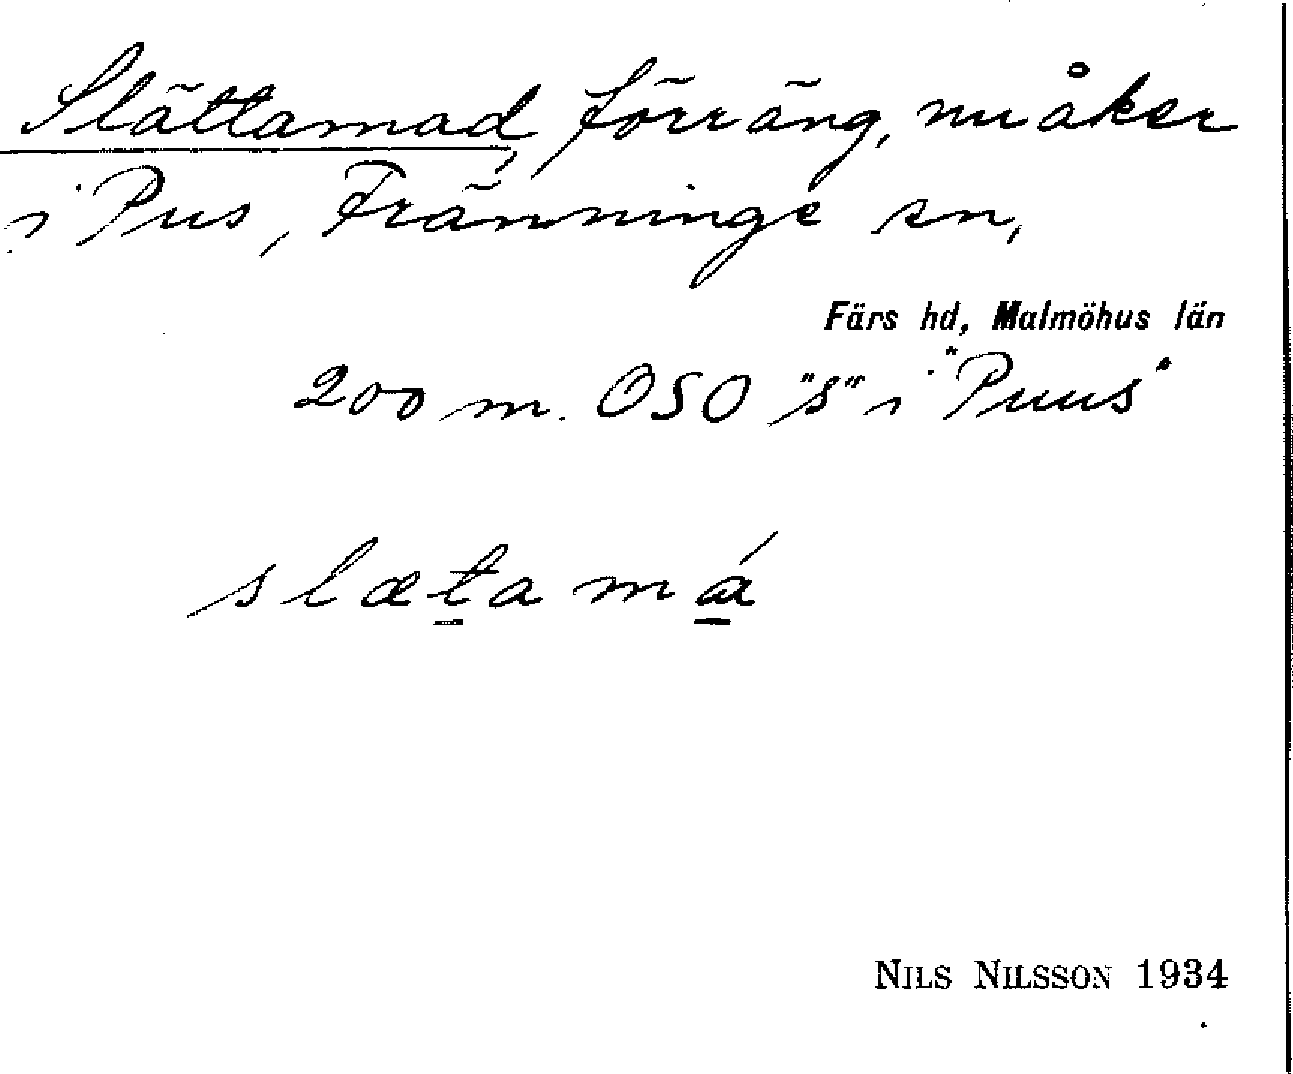 Slättamad, förr äng, nu åker
i Pus, Fränninge sn,
Färs hd, Malmöhus län
200 m. OSO "s" i "Puus"
slætamá
NILS NILSSON 1934